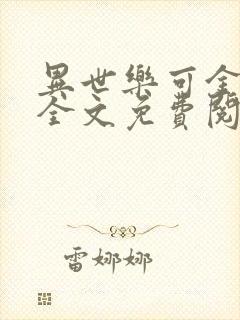 異世樂可全
全文免費閱
雷娜娜